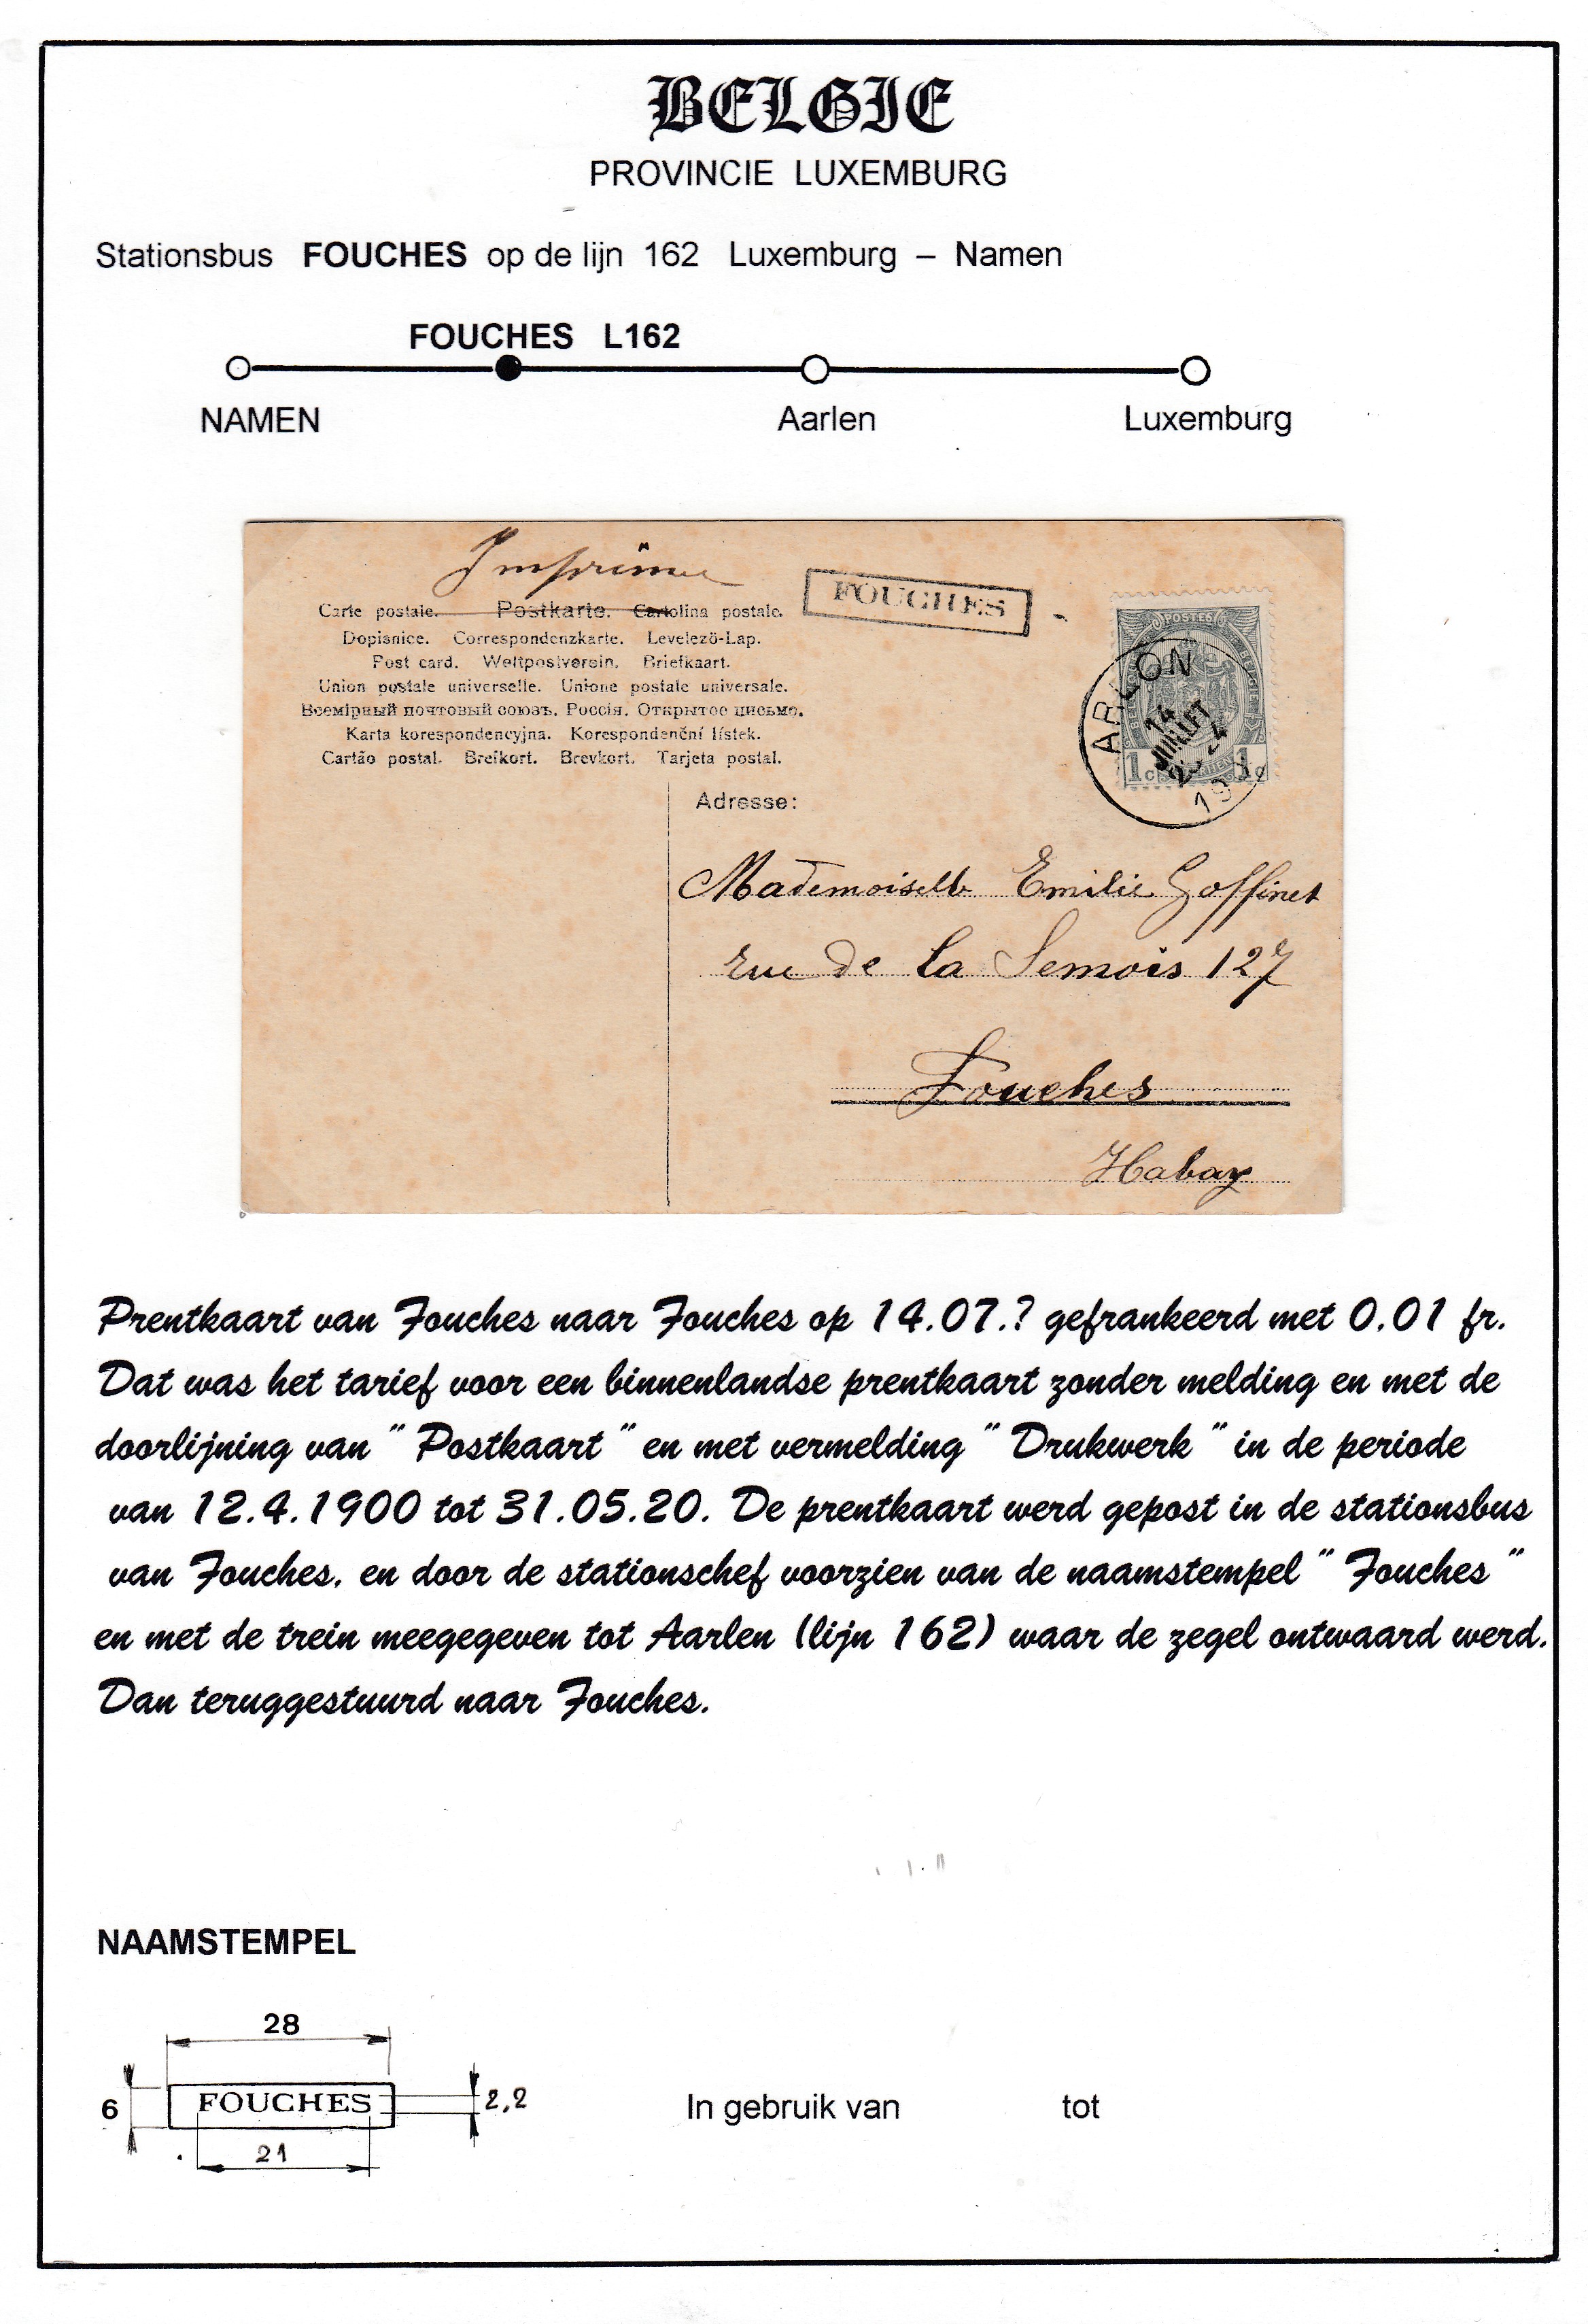 BELGIE
PROVINCIE LUXEMBURG
Stationsbus FOUCHES op de lijn 162 Luxemburg – Namen
FOUCHES L162
NAMEN Aarlen Luxemburg
Imprimé
FOUCHES
Carte postale. Postkarte. Cartolina postale.
Dopisnice. Correspondenzkarte. Levelező-Lap.
Post card. Weltpostverein. Briefkaart.
Union postale universelle. Unione postale universale.
Всемірный почтовый союзъ. Россія. Открытое письмо.
Karta korespondencyjna. Korespondenční lístek.
Cartão postal. Brefkort. Brevkort. Tarjeta postal.
POSTES
ARLON
14
JUILLET
19
1c 1c
Adresse:
Mademoiselle Emilie Goffinet
rue de la Semois 127
Fouches
Habay
Prentkaart van Fouches naar Fouches op 14.07.? gefrankeerd met 0.01 fr.
Dat was het tarief voor een binnenlandse prentkaart zonder melding en met de
doorlijning van " Postkaart " en met vermelding " Drukwerk " in de periode
van 12.4.1900 tot 31.05.20. De prentkaart werd gepost in de stationsbus
van Fouches. en door de stationschef voorzien van de naamstempel " Fouches "
en met de trein meegegeven tot Aarlen (lijn 162) waar de zegel ontwaard werd.
Dan teruggestuurd naar Fouches.
NAAMSTEMPEL
28
6 FOUCHES 2,2
21
In gebruik van tot